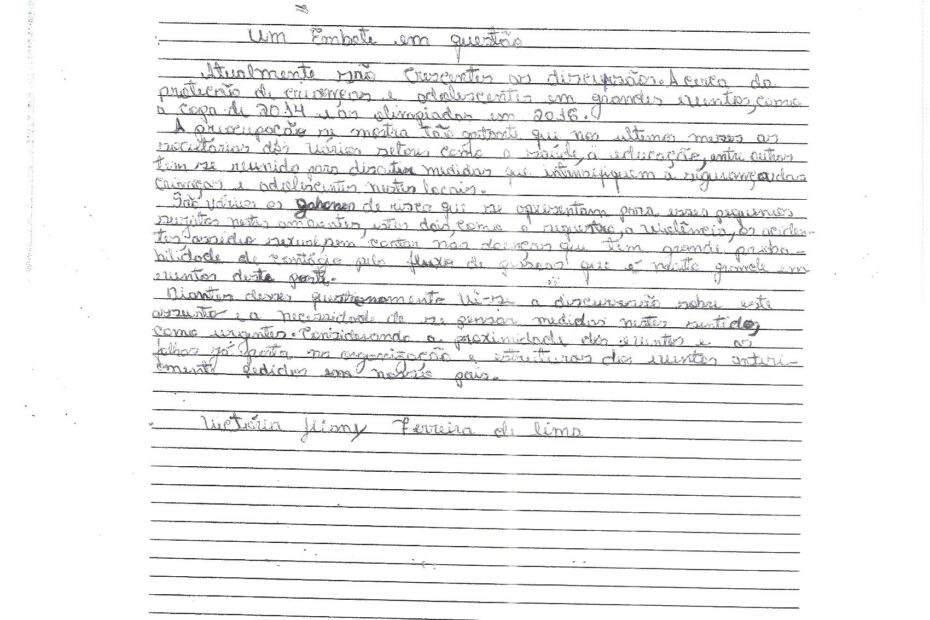 Um Embate em questão
Atualmente são crescentes as discursões. Acerca da
proteção de crianças e adolescentes em grandes eventos, como
a copa de 2014 e as olimpiadas em 2016.
A preocupação se mostra tão gritante que nos ultimos meses as
secretárias dos vários setores como a saúde, a educação, entre outros
tem se reunido para discutir medidas que intensifiquem a segurança das
crianças e adolescentes nestes locais.
São vários os de risco que se apresentam para esses pequenos
sujeitos nestes ambientes, como o sequestro, a violência, os aciden-
tes assédio sexual sem contar nas doenças que tem grande proba-
bilidade de contágio pelo fluxo de pessoas que é muito grande em
eventos deste porte.
Diantes desses questionamento vê-se a discurssão sobre este
assunto e a necessidade de se pensar medidas nestes sentidos,
como urgentes. Considerando a proximidade dos eventos e as
falhas já posta na organização e estruturas dos eventos anteri-
mente pedidos em nosso pais.
Victória Ferreira de lima